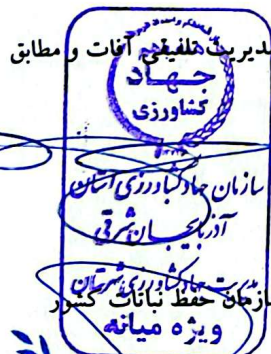 مدیریت تلفیقی آفات و مطابق
جهاد
کشاورزی
سازمان جهاد کشاورزی استان
آذربایجان شرقی
مدیریت جهاد کشاورزی شهرستان
سازمان حفظ نباتات کشور
ویژه میانه